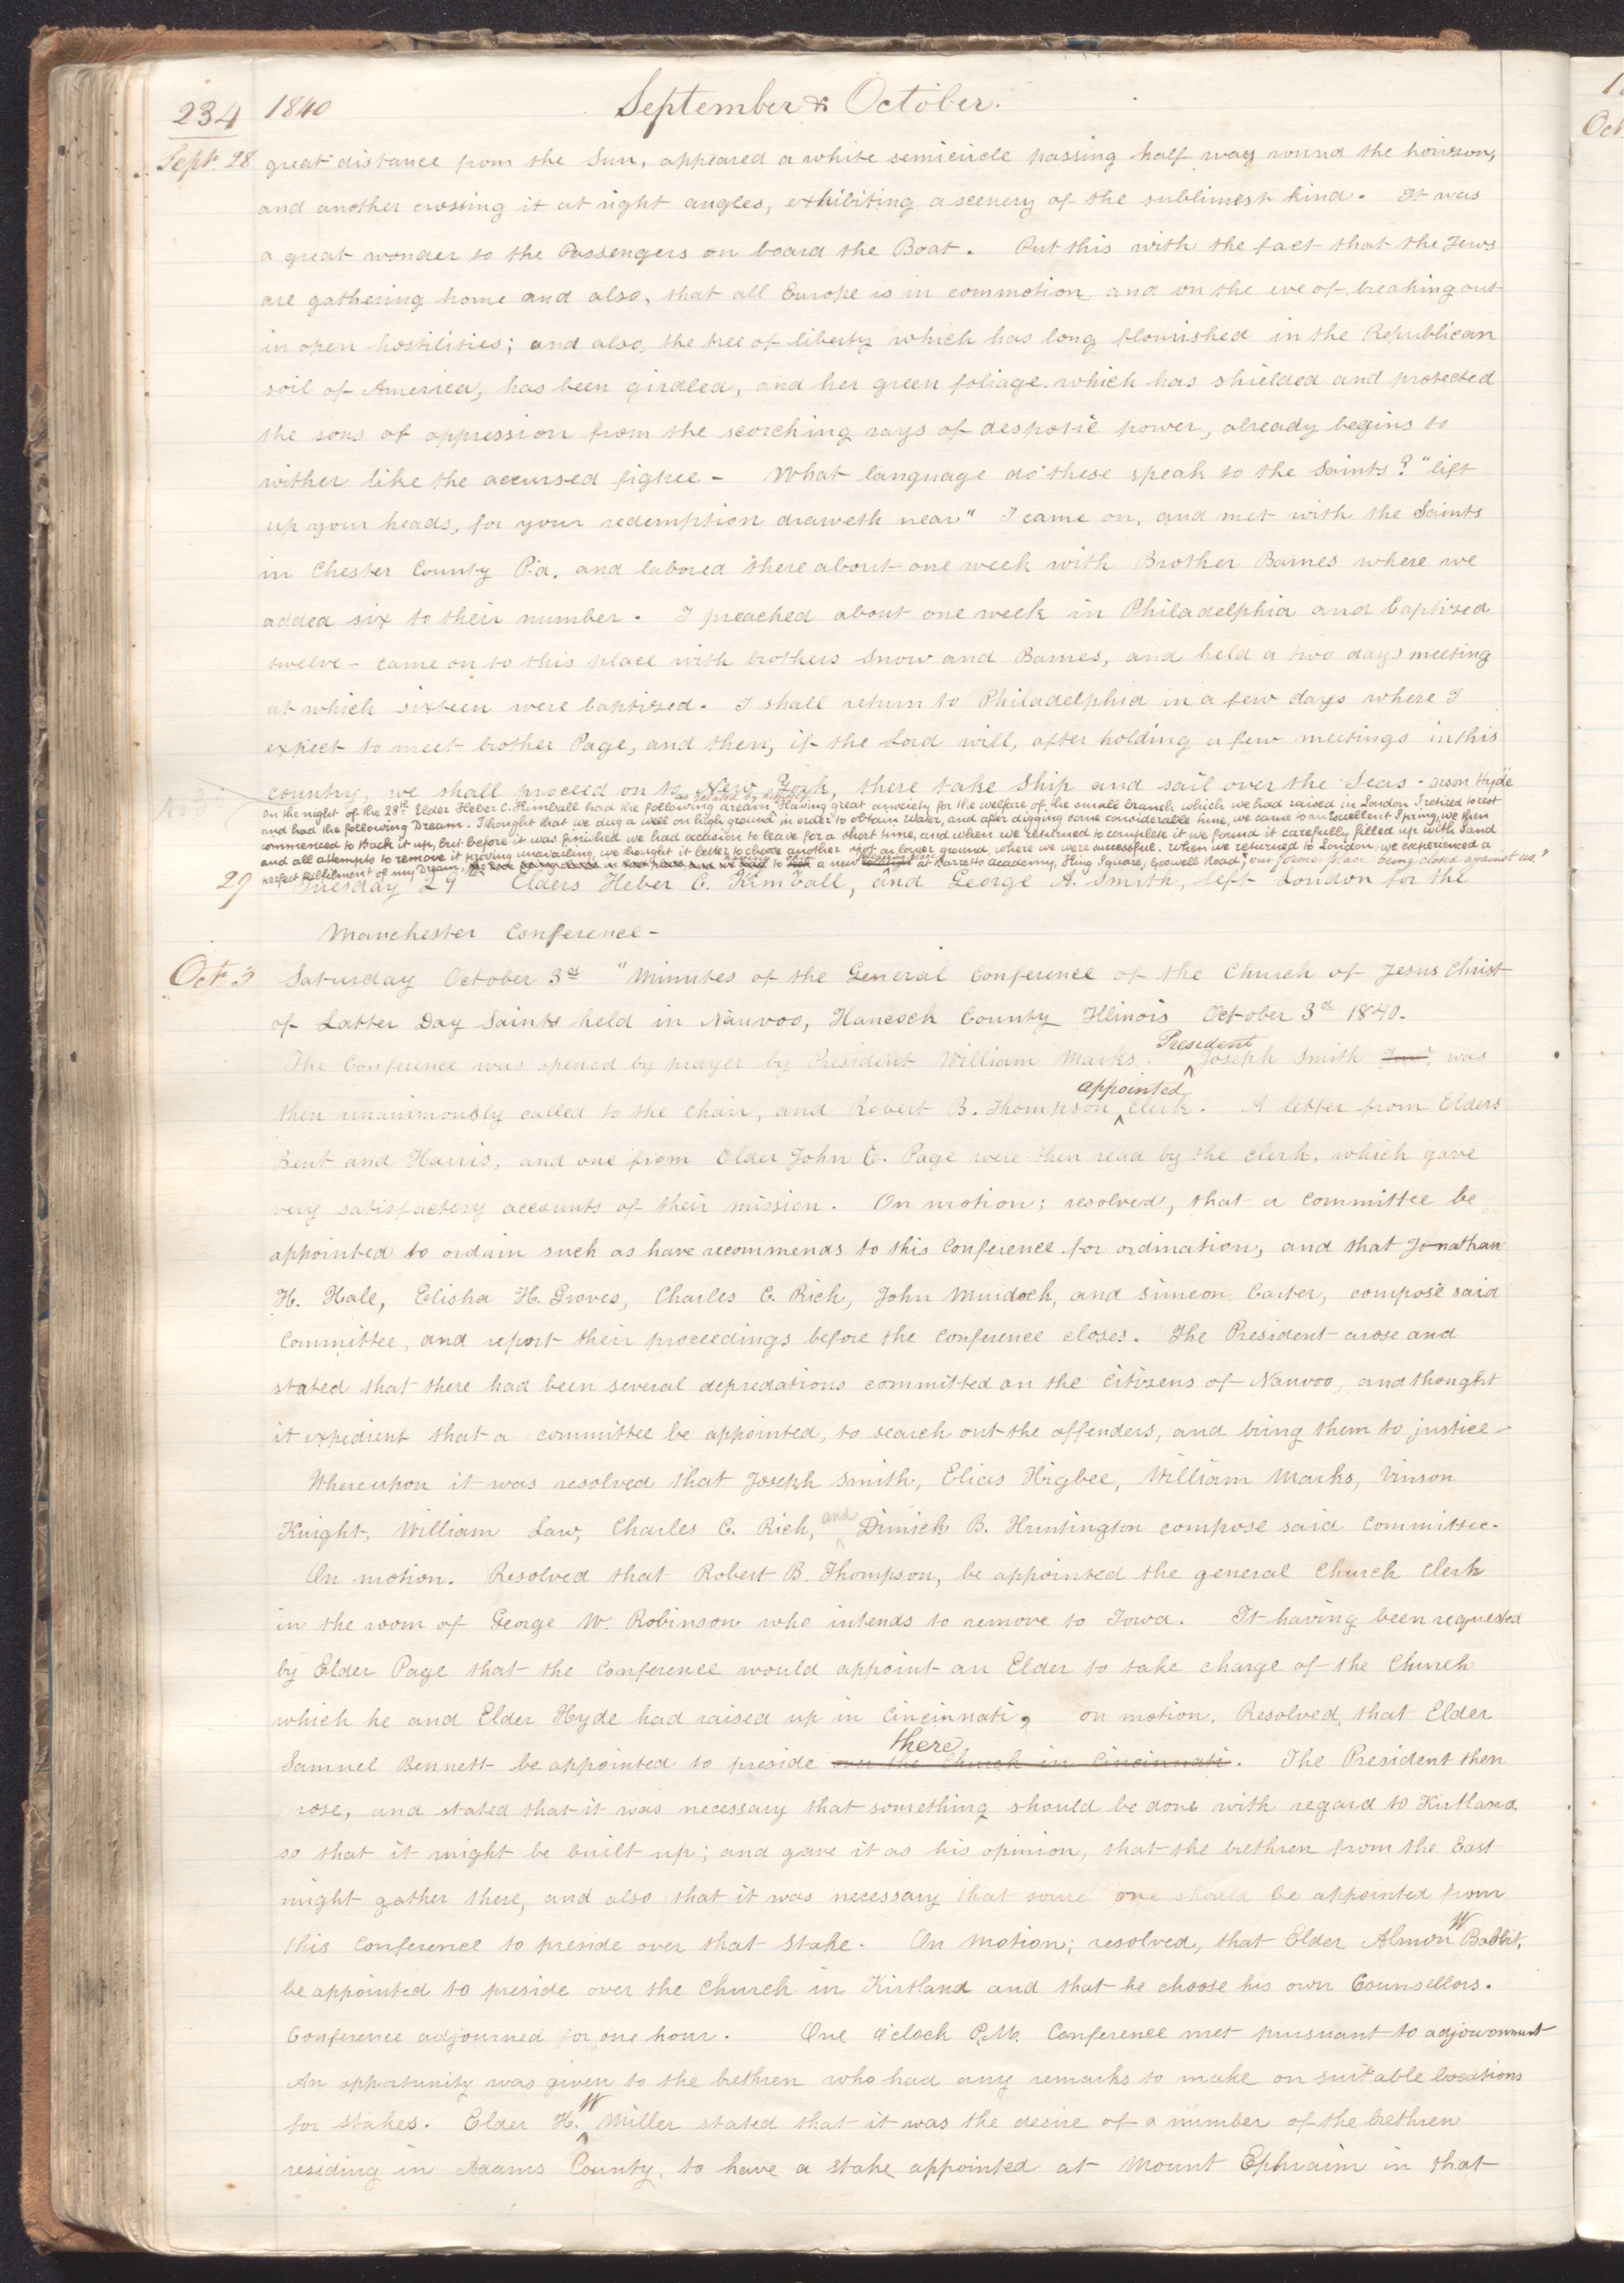 234 1840 September & October.
Sept. 28 great distance from the Sun, appeared a white semicircle passing half way round the horizon,
and another crossing it at right angles, exhibiting a scenery of the sublimest kind. It was
a great wonder to the Passengers on board the Boat. Put this with the fact that the Jews
are gathering home and also, that all Europe is in commotion, and on the eve of breaking out
in open hostilities; and also, the tree of liberty which has long flourished in the Republican
soil of America, has been girdled, and her green foliage which has shielded and protected
the sons of oppression from the scorching rays of despotic power, already begins to
wither like the accursed figtree - What language do these speak to the Saints? "lift
up your heads, for your redemption draweth near" I came on, and met with the Saints
in Chester County Pa. and labored there about one week with Brother Barnes where we
added six to their number. I preached about one week in Philadelphia and baptized
twelve - came on to this place with brothers Snow and Barnes, and held a two days meeting
at which sixteen were baptized. I shall return to Philadelphia in a few days where I
expect to meet brother Page, and then, if the Lord will, after holding a few meetings in this
country, we shall proceed on to New York, there take Ship and sail over the Seas. Orson Hyde"
as related by himself
On the night of the 28th Elder Heber C. Kimball had the following dream, "Having great anxiety for the welfare of the small branch which we had raised in London I retired to rest
and had the following Dream. I thought that we dug a well on high ground in order to obtain Water, and after digging some considerable time, we came to an Excellent Spring; we then
commenced to Rock it up, but before it was finished we had occasion to leave for a short time, and when we returned to complete it we found it carefully filled up with Sand
and all attempts to remove it proving unavailing, we thought it better to choose another spot on lower ground, where we were successful. When we returned to London, we experienced a
perfect fulfilment of my Dream, having to open a new preaching place at Barretts Academy, King Square, Goswell Road; our former place being closed against us."
29 Tuesday 29 Elders Heber C. Kimball, and George A. Smith, left London for the
Manchester Conference -
Oct. 3 Saturday October 3d "Minutes of the General Conference of the Church of Jesus Christ
of Latter Day Saints held in Nauvoo, Hancock County Illinois October 3d 1840.
The Conference was opened by prayer by President William Marks. President Joseph Smith Junr. was
then unanimously called to the chair, and Robert B. Thompson appointed Clerk. A letter from Elders
Bent and Harris, and one from Elder John E. Page were then read by the clerk, which gave
very satisfactory accounts of their mission. On motion; resolved, that a committee be
appointed to ordain such as have recommends to this Conference for ordination, and that Jonathan
H. Hale, Elisha H. Groves, Charles C. Rich, John Murdock, and Simeon Carter, compose said
Committee, and report their proceedings before the Conference closes. The President arose and
stated that there had been several depredations committed on the citizens of Nauvoo, and thought
it expedient that a committee be appointed, to search out the offenders, and bring them to justice -
Whereupon it was resolved that Joseph Smith, Elias Higbee, William Marks, Vinson
Knight, William Law, Charles C. Rich, and Dimick B. Huntington compose said committee.
On motion. Resolved that Robert B. Thompson, be appointed the general Church Clerk
in the room of George W. Robinson who intends to remove to Iowa. It having been requested
by Elder Page that the Conference would appoint an Elder to take charge of the Church
which he and Elder Hyde had raised up in Cincinnati, on motion. Resolved, that Elder
Samuel Bennett be appointed to preside there over the Church in Cincinnati. The President then
rose, and stated that it was necessary that something should be done with regard to Kirtland
so that it might be built up; and gave it as his opinion, that the brethren from the East
might gather there, and also that it was necessary that some one should be appointed from
this Conference to preside over that Stake. On Motion; resolved, that Elder Almon W Babbit,
be appointed to preside over the Church in Kirtland and that he choose his own Counsellors.
Conference adjourned for one hour. One O'clock P.M. Conference met pursuant to adjournment
An opportunity was given to the brethren who had any remarks to make on suitable locations
for stakes. Elder H. W Miller stated that it was the desire of a number of the brethren
residing in Adams County, to have a stake appointed at Mount Ephraim in that